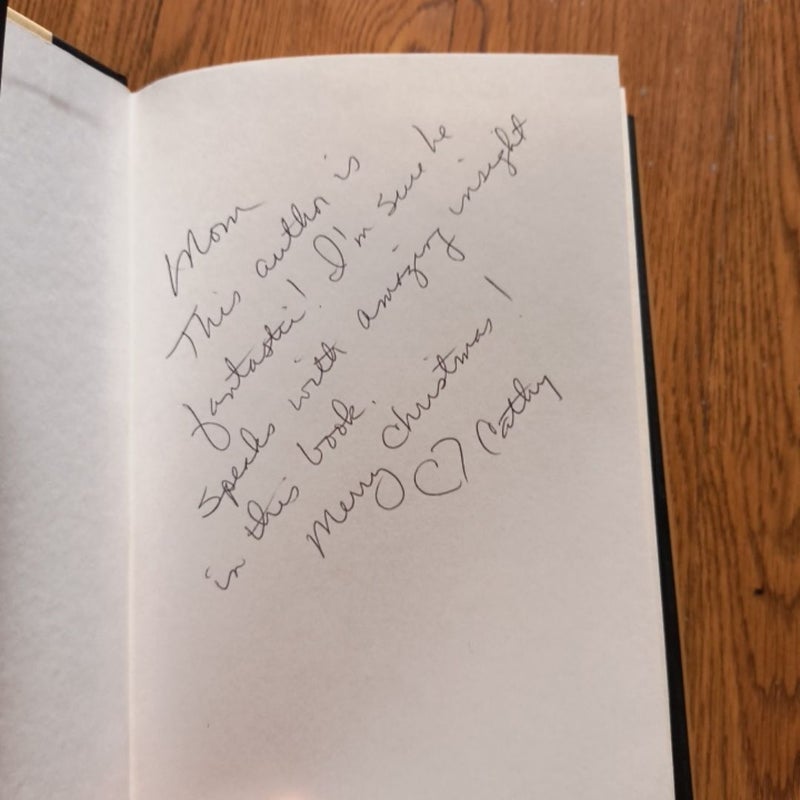 Mom
This author is
fantastic! I'm sure he
speaks with amazing insight
in this book.
Merry Christmas!
♡ Cathy